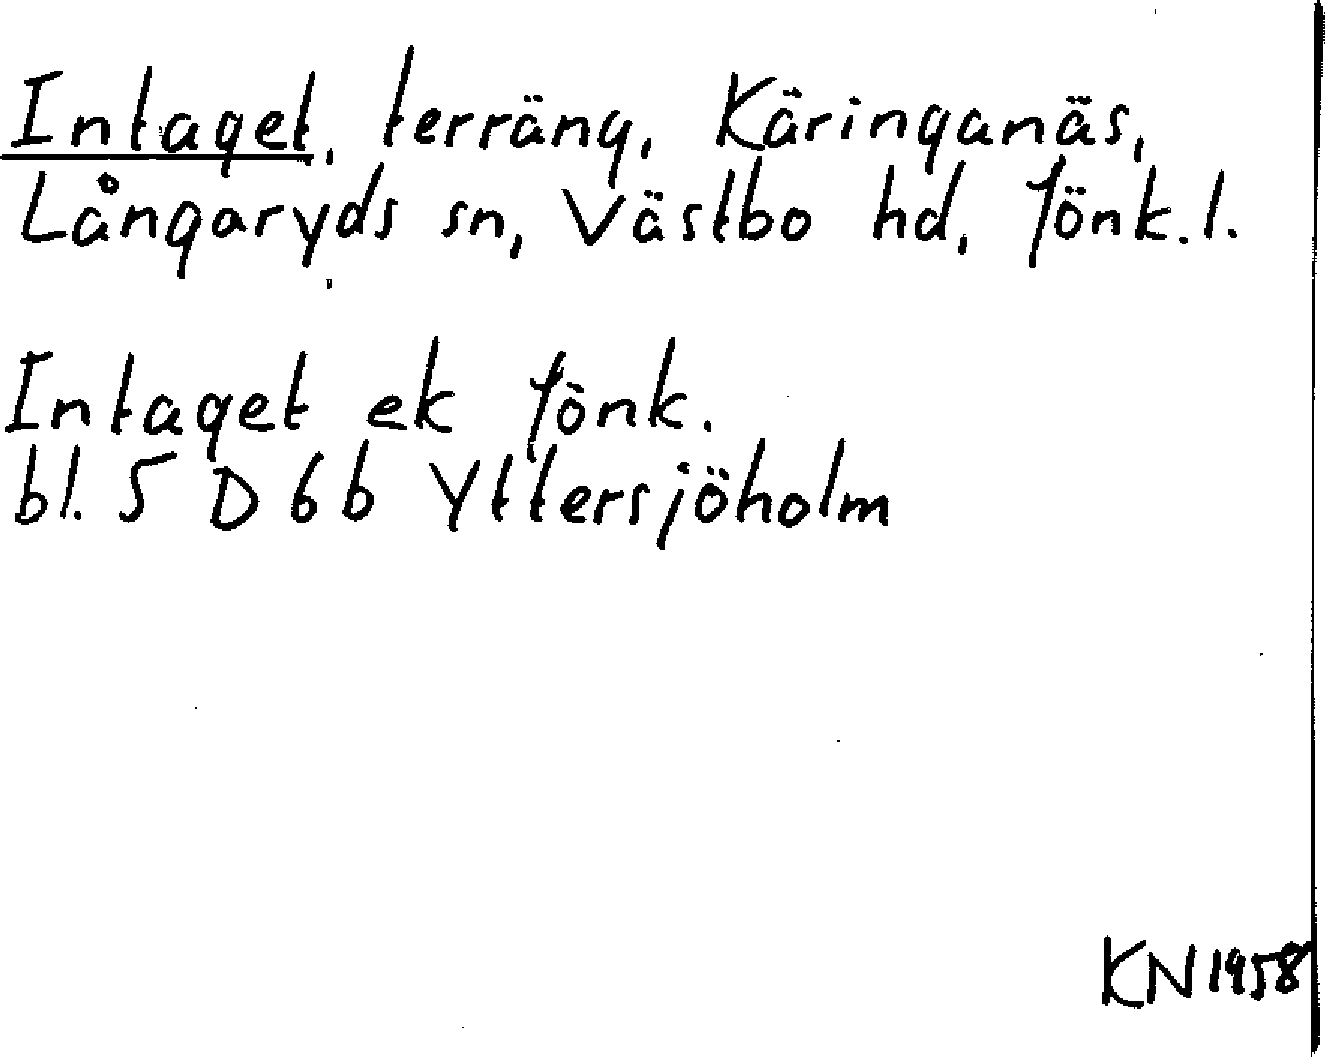 Intaget, terräng, Käringanäs,
Långaryds sn, Västbo hd, Jönk.l.
Intaget ek Jönk.
bl. 5 D 6 b Yttersjöholm
KN 1958